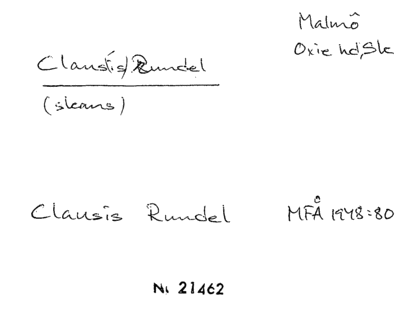 Malmö
Oxie hd, Sk
Clausis Rundel
(skans)
Clausis Rundel MFÅ 1948:80
N: 21462